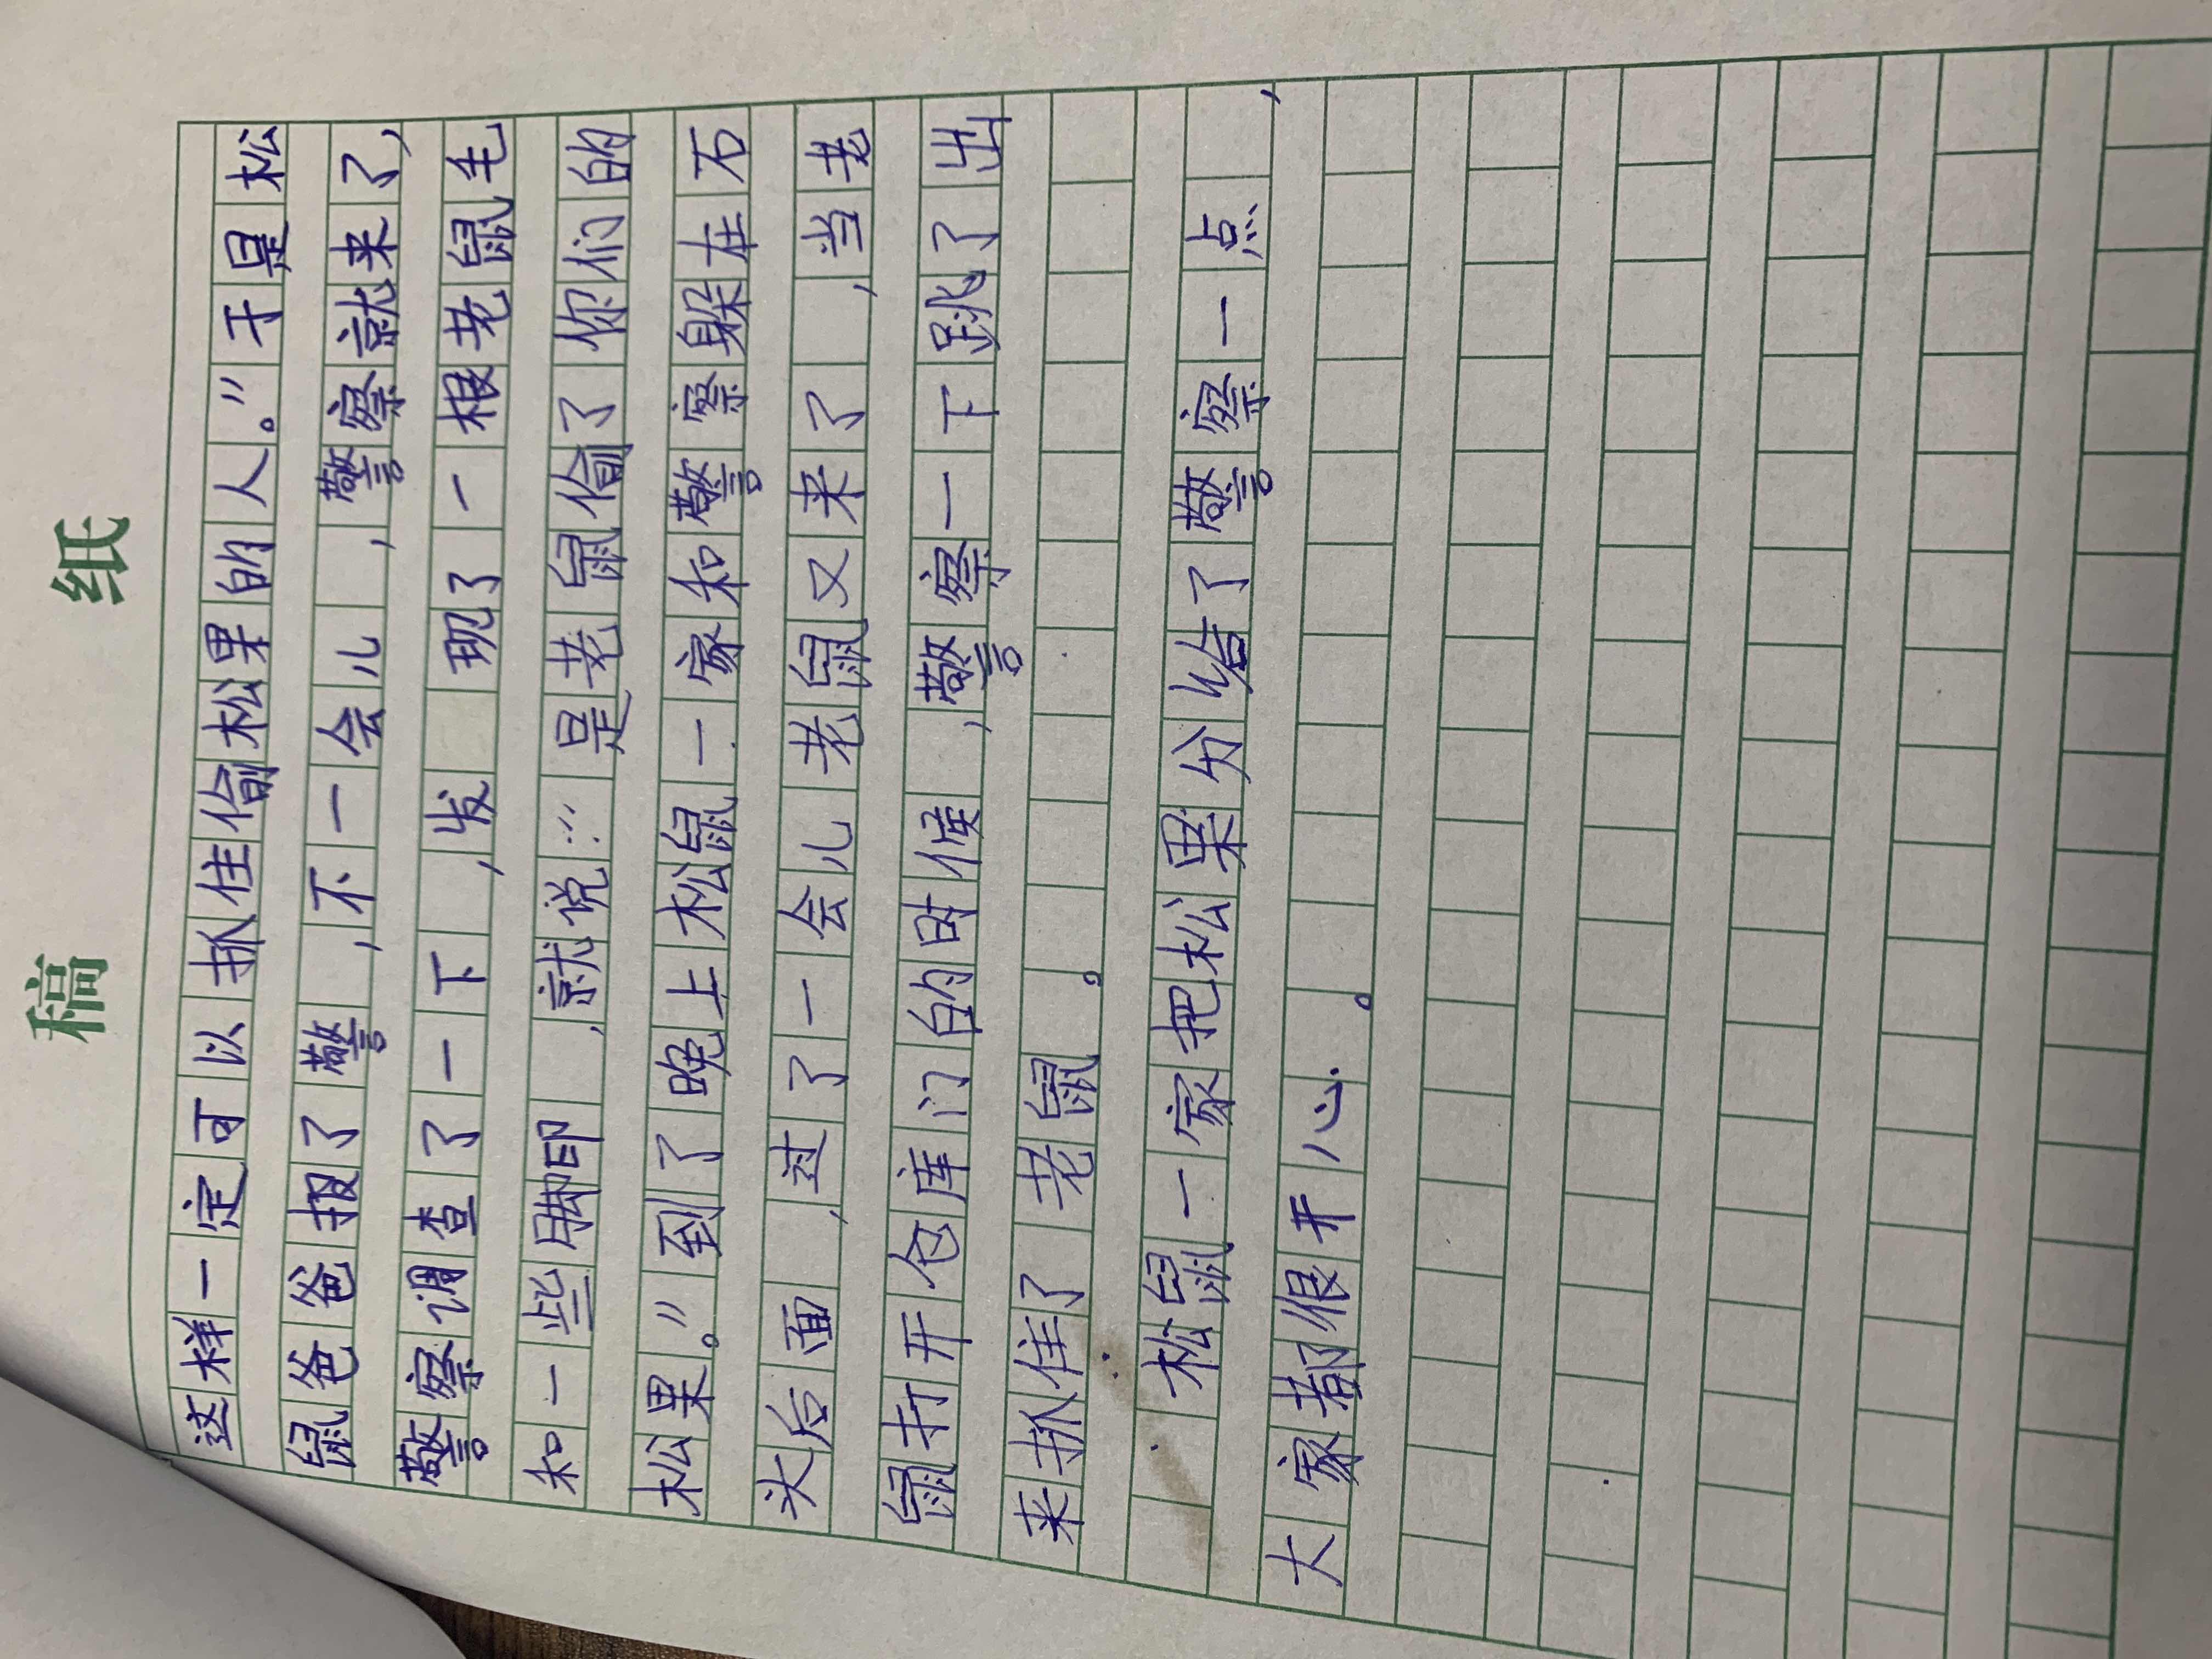 稿 纸
这样一定可以抓住偷松果的人。”于是松
鼠爸爸报了警,不一会儿,警察就来了,
警察调查了一下,发现了一根老鼠毛
和一些脚印,就说:“是老鼠偷了你们的
松果。”到了晚上松鼠一家和警察躲在石
头后面,过了一会儿老鼠又来了,当老
鼠打开仓库门的时候,警察一下跳了出
来抓住了老鼠。
松鼠一家把松果分给了警察一点,
大家都很开心。